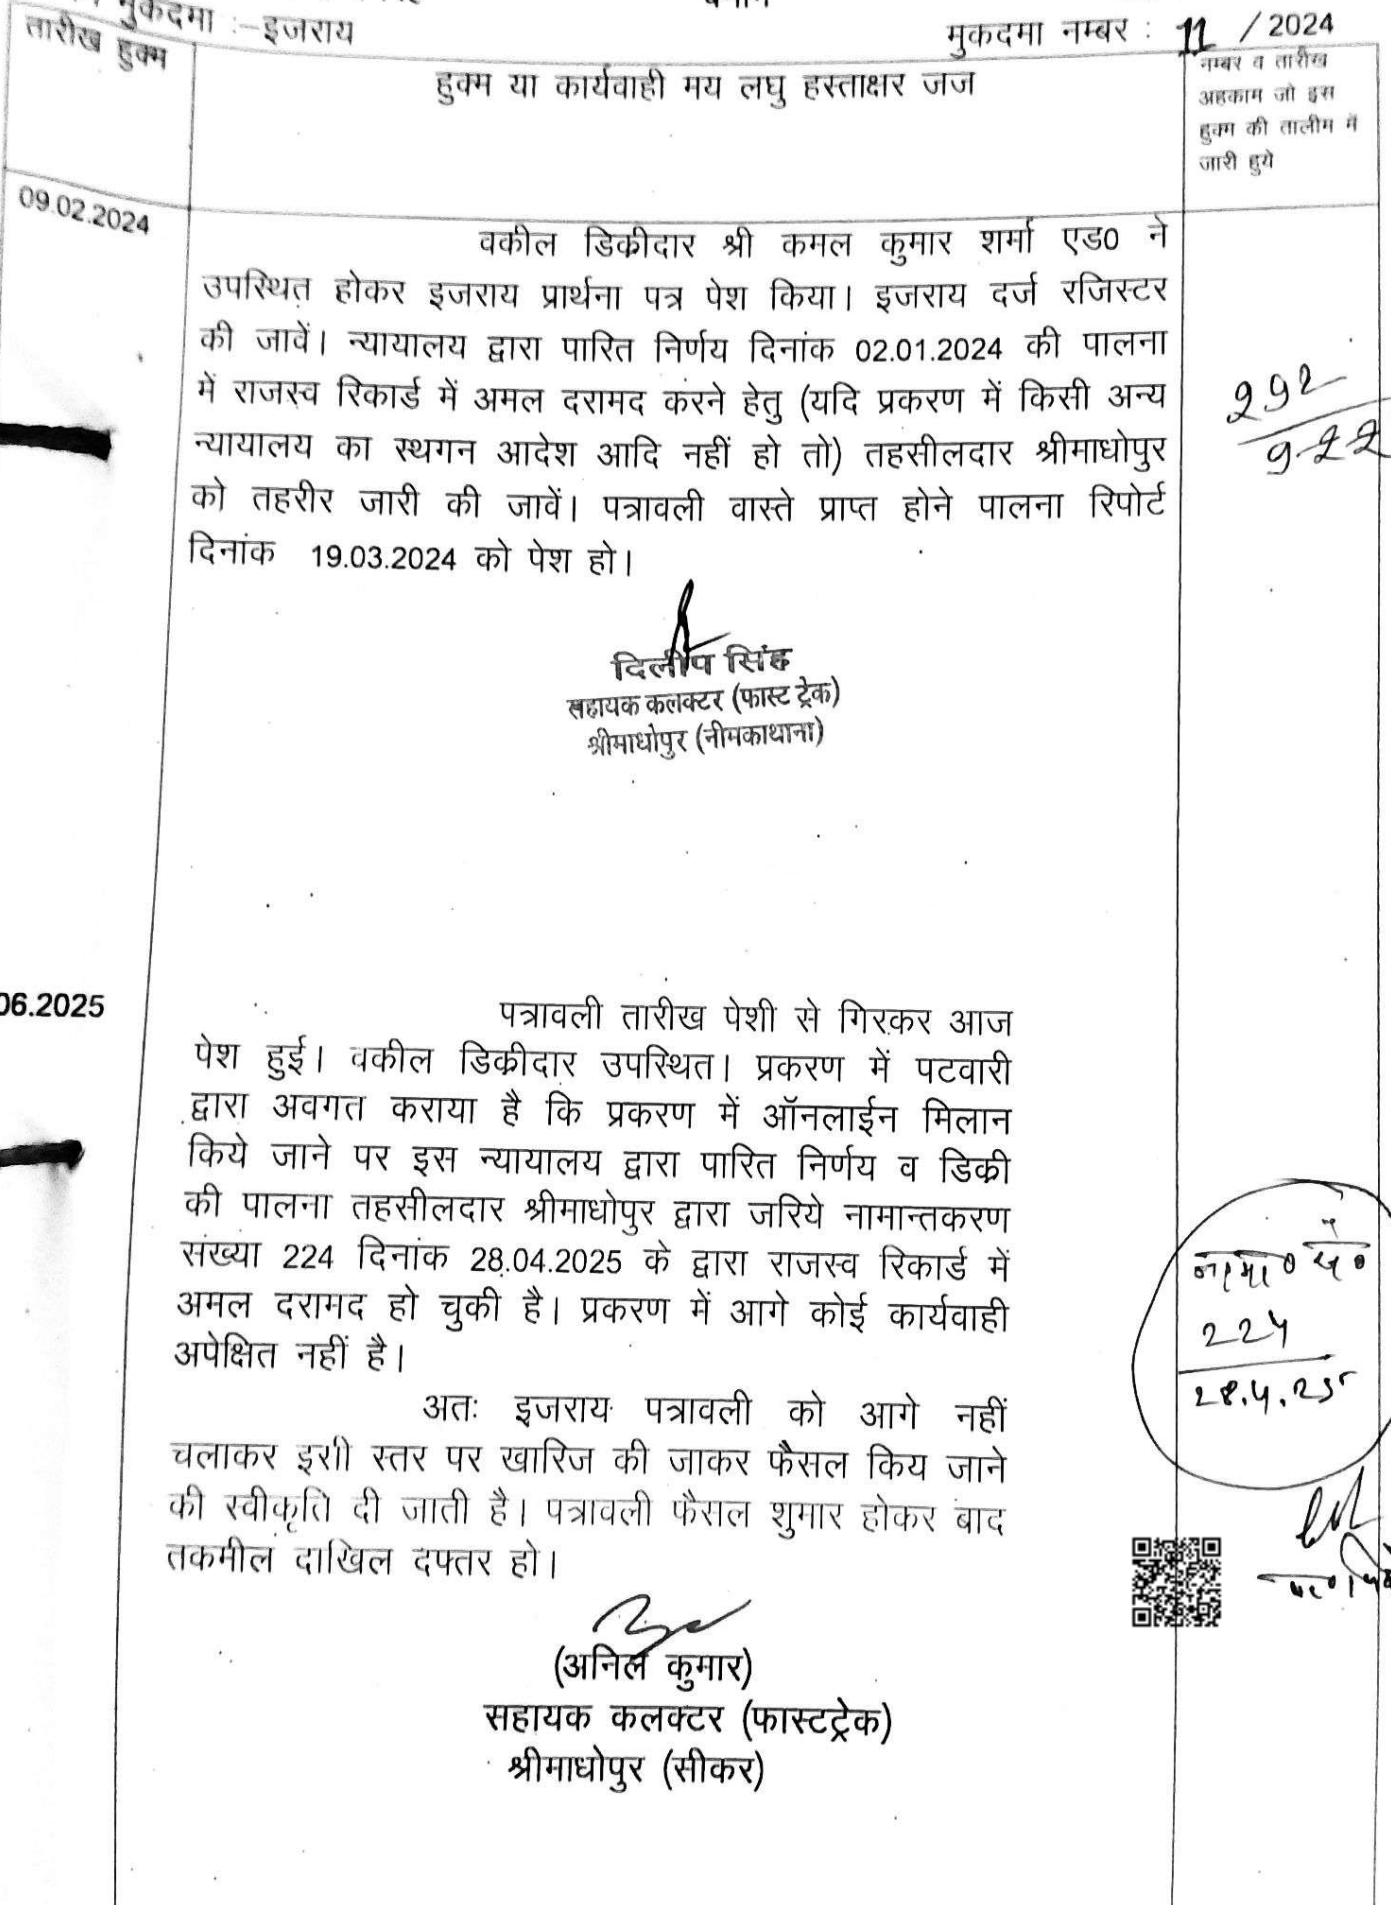 मुकदमा :–इजराय
मुकदमा नम्बर : 11 / 2024
तारीख हुक्म
हुक्म या कार्यवाही मय लघु हस्ताक्षर जज
नम्बर व तारीख
अहकाम जो इस
हुक्म की तालीम में
जारी हुये
09.02.2024
वकील डिक्रीदार श्री कमल कुमार शर्मा एड0 ने
उपस्थित होकर इजराय प्रार्थना पत्र पेश किया। इजराय दर्ज रजिस्टर
की जावें। न्यायालय द्वारा पारित निर्णय दिनांक 02.01.2024 की पालना
में राजस्व रिकार्ड में अमल दरामद करने हेतु (यदि प्रकरण में किसी अन्य
न्यायालय का स्थगन आदेश आदि नहीं हो तो) तहसीलदार श्रीमाधोपुर
को तहरीर जारी की जावें। पत्रावली वास्ते प्राप्त होने पालना रिपोर्ट
दिनांक 19.03.2024 को पेश हो।
292
दिलीप सिंह
सहायक कलक्टर (फास्ट ट्रेक)
श्रीमाधोपुर (नीमकाथाना)
06.2025
पत्रावली तारीख पेशी से गिरकर आज
पेश हुई। वकील डिक्रीदार उपस्थित। प्रकरण में पटवारी
द्वारा अवगत कराया है कि प्रकरण में ऑनलाईन मिलान
किये जाने पर इस न्यायालय द्वारा पारित निर्णय व डिक्री
की पालना तहसीलदार श्रीमाधोपुर द्वारा जरिये नामान्तकरण
संख्या 224 दिनांक 28.04.2025 के द्वारा राजस्व रिकार्ड में
अमल दरामद हो चुकी है। प्रकरण में आगे कोई कार्यवाही
अपेक्षित नहीं है।
नामा0 सं0
224
28.4.25
अतः इजराय पत्रावली को आगे नहीं
चलाकर इसी स्तर पर खारिज की जाकर फैसल किय जाने
की स्वीकृति दी जाती है। पत्रावली फैसल शुमार होकर बाद
तकमील दाखिल दफ्तर हो।
(अनिल कुमार)
सहायक कलक्टर (फास्टट्रेक)
श्रीमाधोपुर (सीकर)